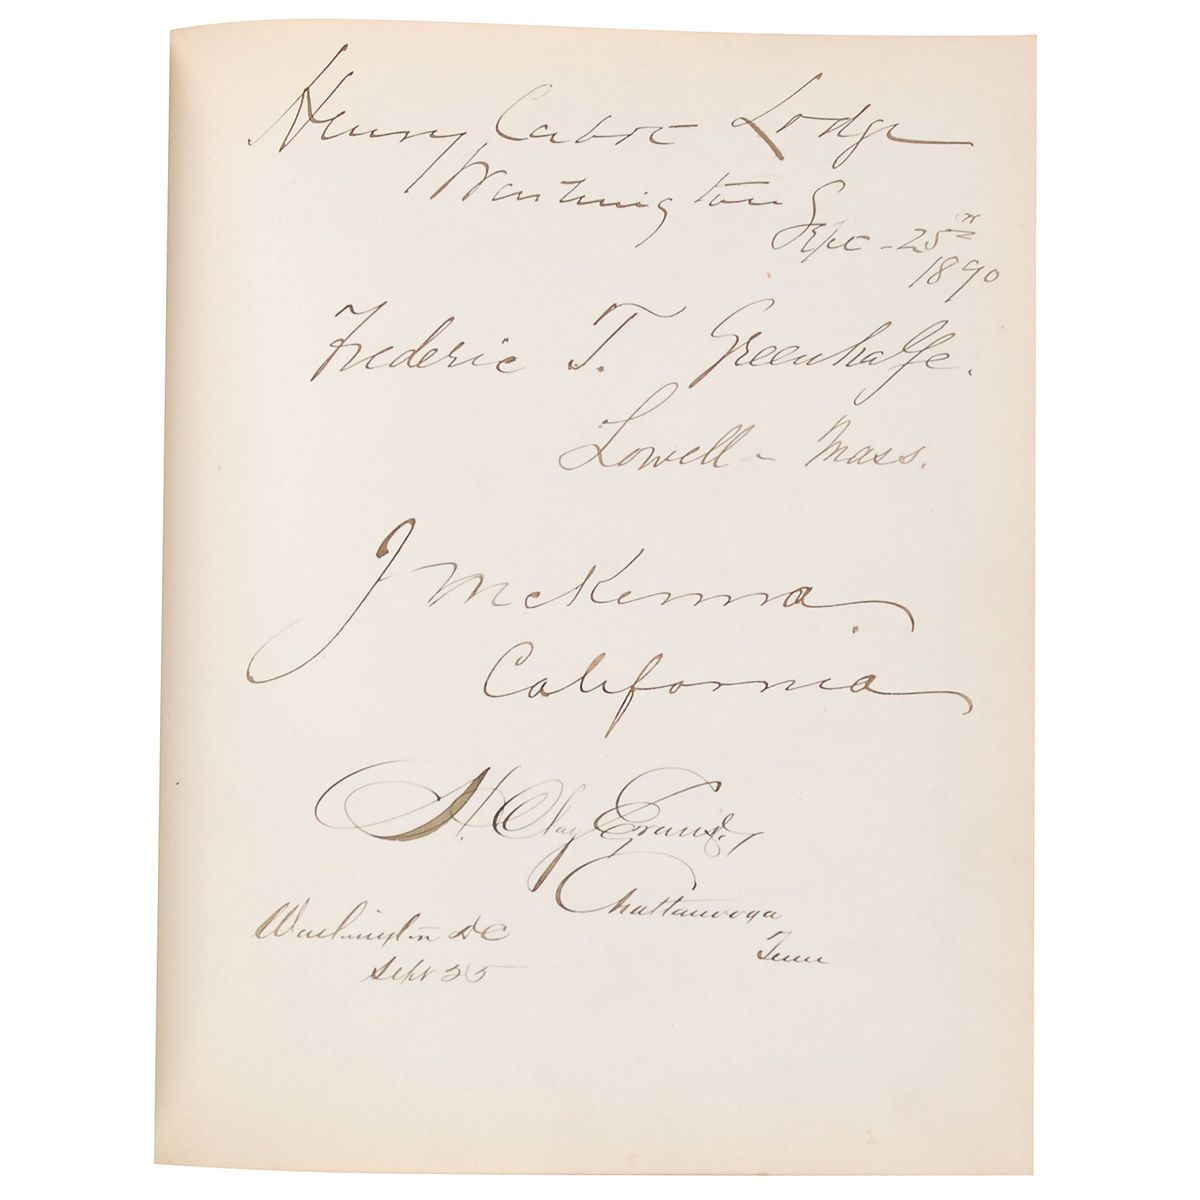 Henry Cabot Lodge
Washington
Sept - 25th
1890
Frederic T. Greenhalge.
Lowell - Mass.
J McKenna
California
H. Clay Evans,
Chattanooga
Tenn
Washington DC
Sept 25